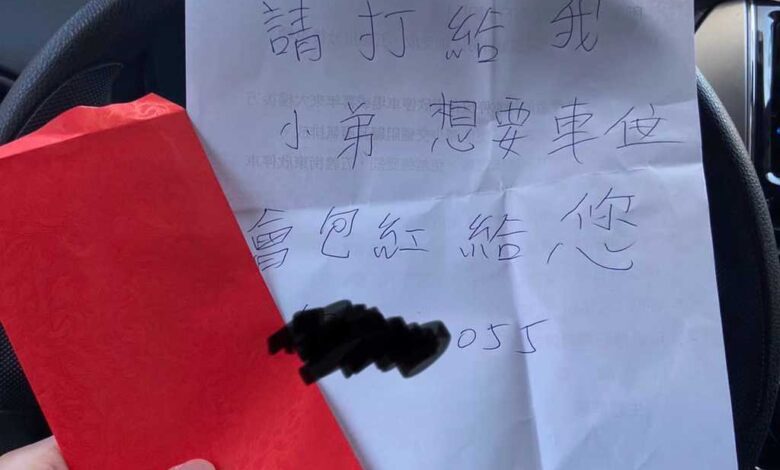 請打給我
小弟 想要車位
會包紅給您
055